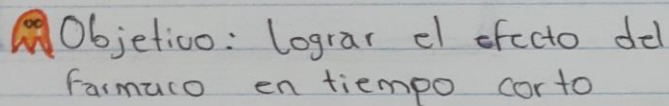 Objetivo: lograr el efecto del
farmaco en tiempo corto